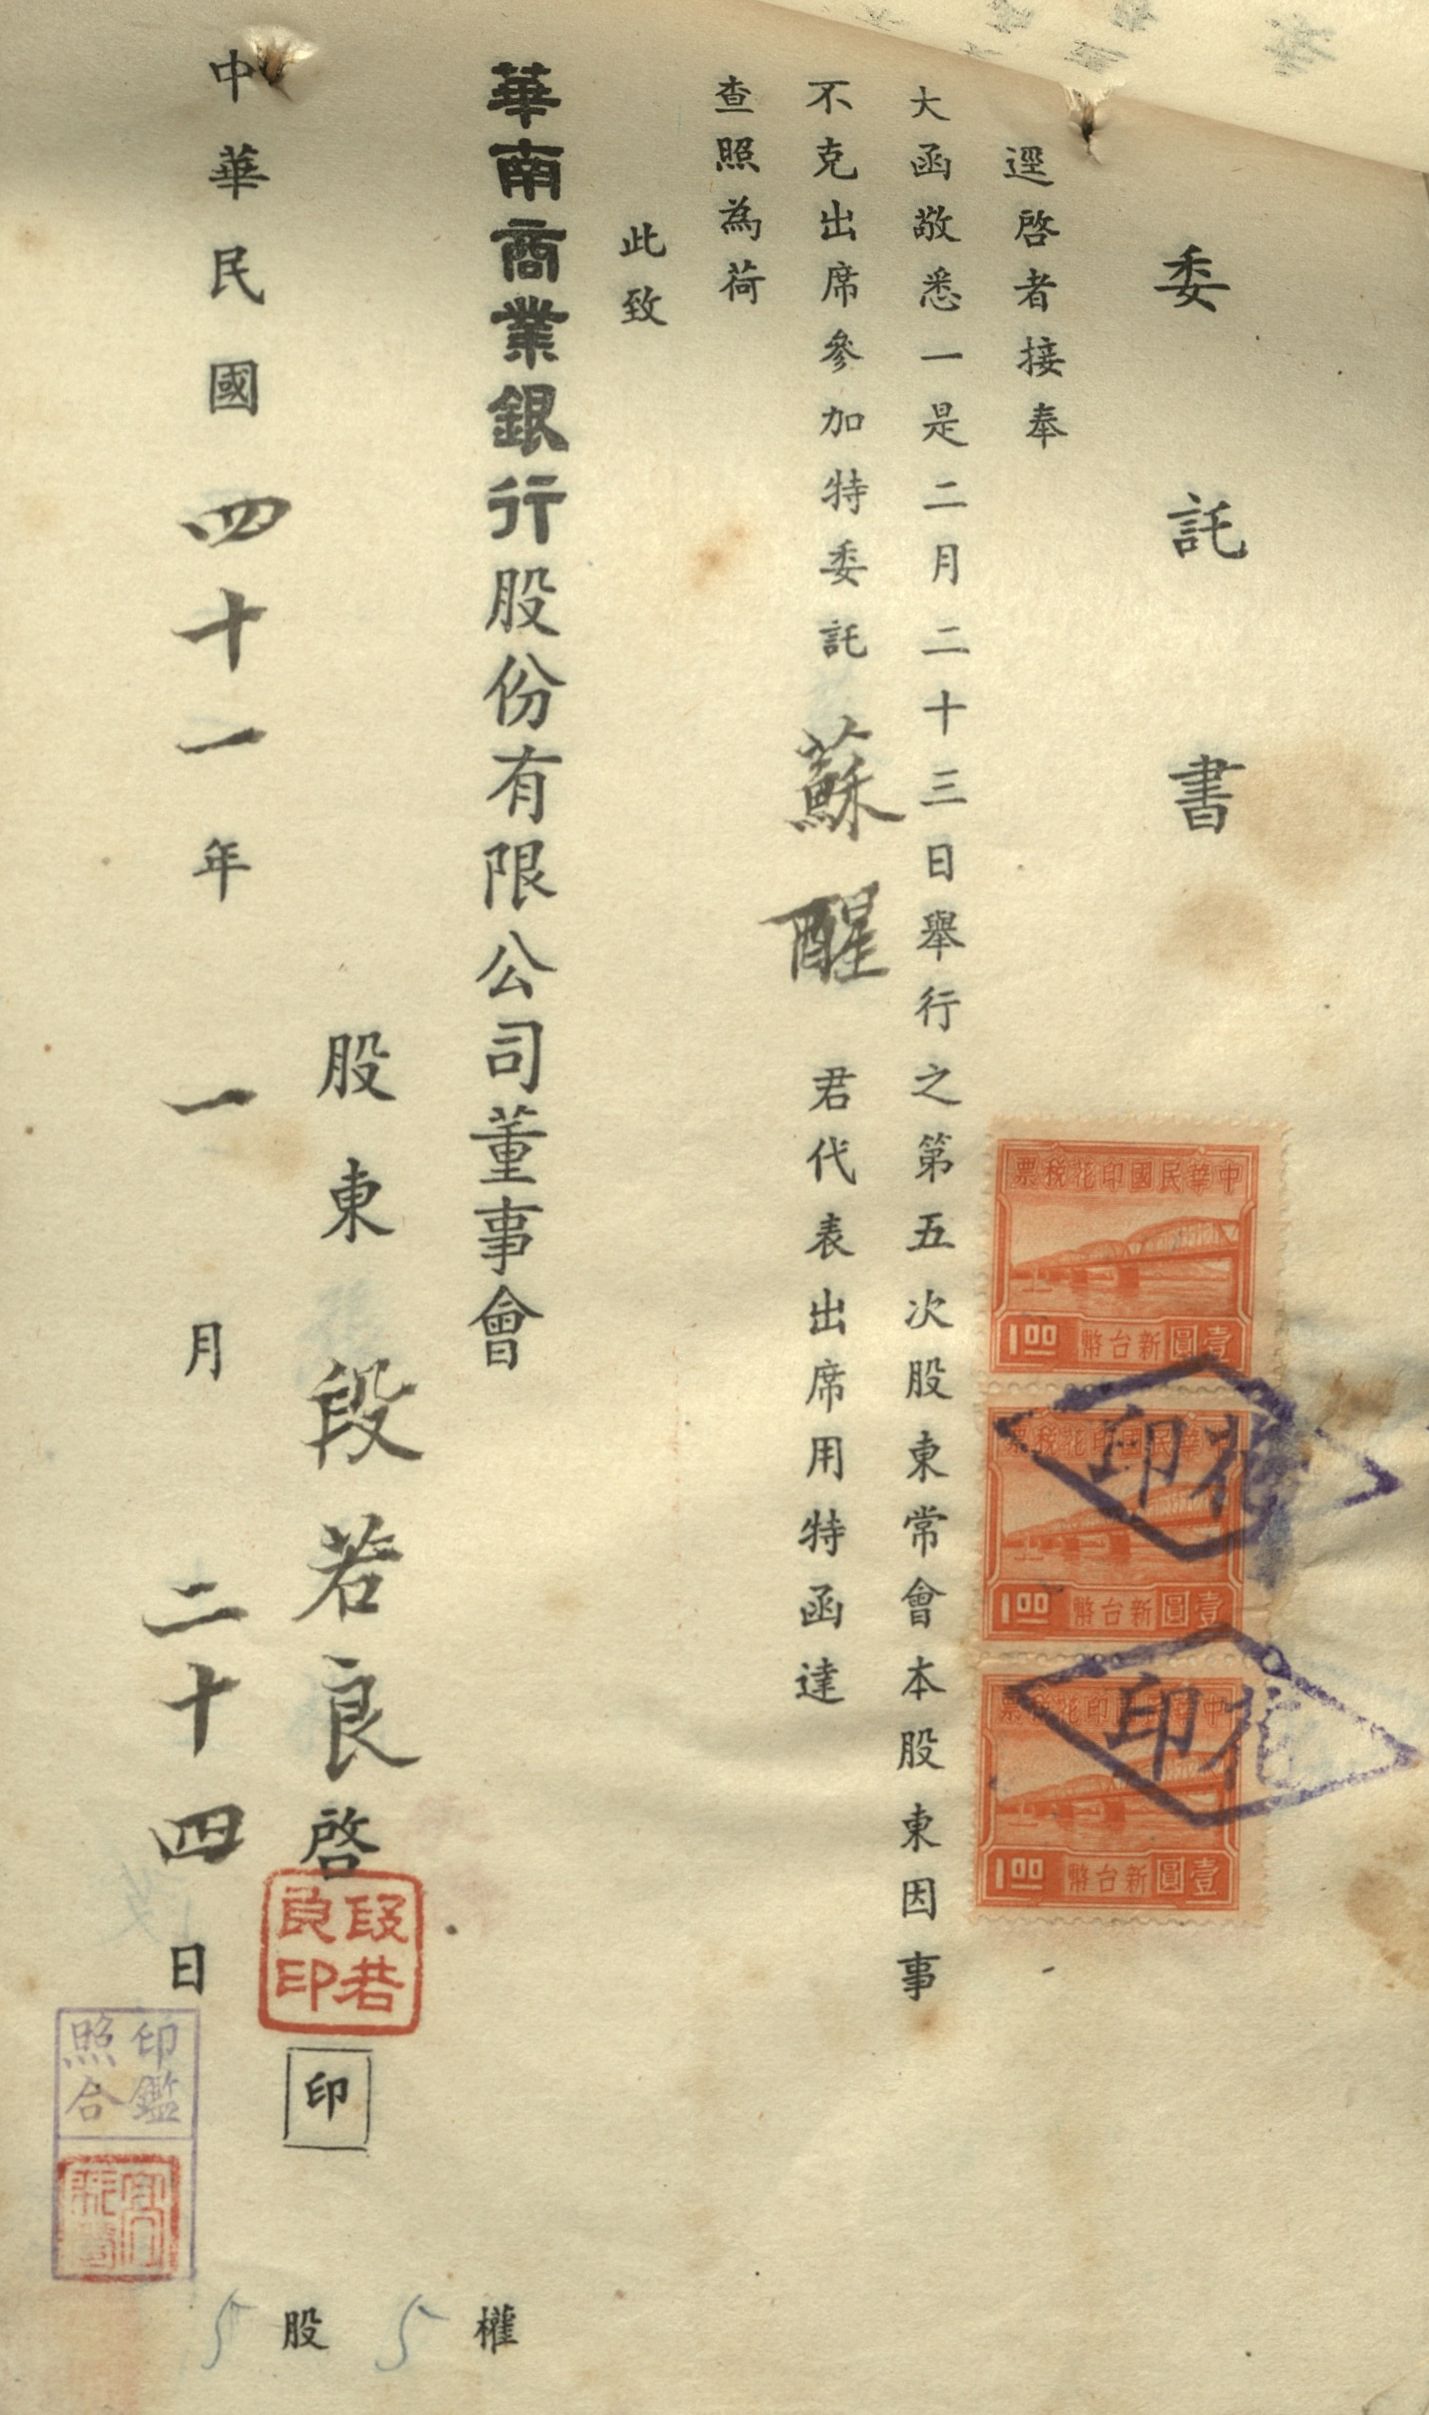 委託書
逕啓者接奉
大函敬悉一是二月二十三日舉行之第五次股東常會本股東因事
不克出席參加特委託蘇醒君代表出席用特函達
查照為荷
此致
華南商業銀行股份有限公司董事會
股東段若良啓
段若良印
印
中華民國四十一年一月二十四日
印鑑照合
5股5權
中華民國印花稅票
1.00 新台幣壹圓
中華民國印花稅票
1.00 新台幣壹圓
中華民國印花稅票
1.00 新台幣壹圓
印花
印花